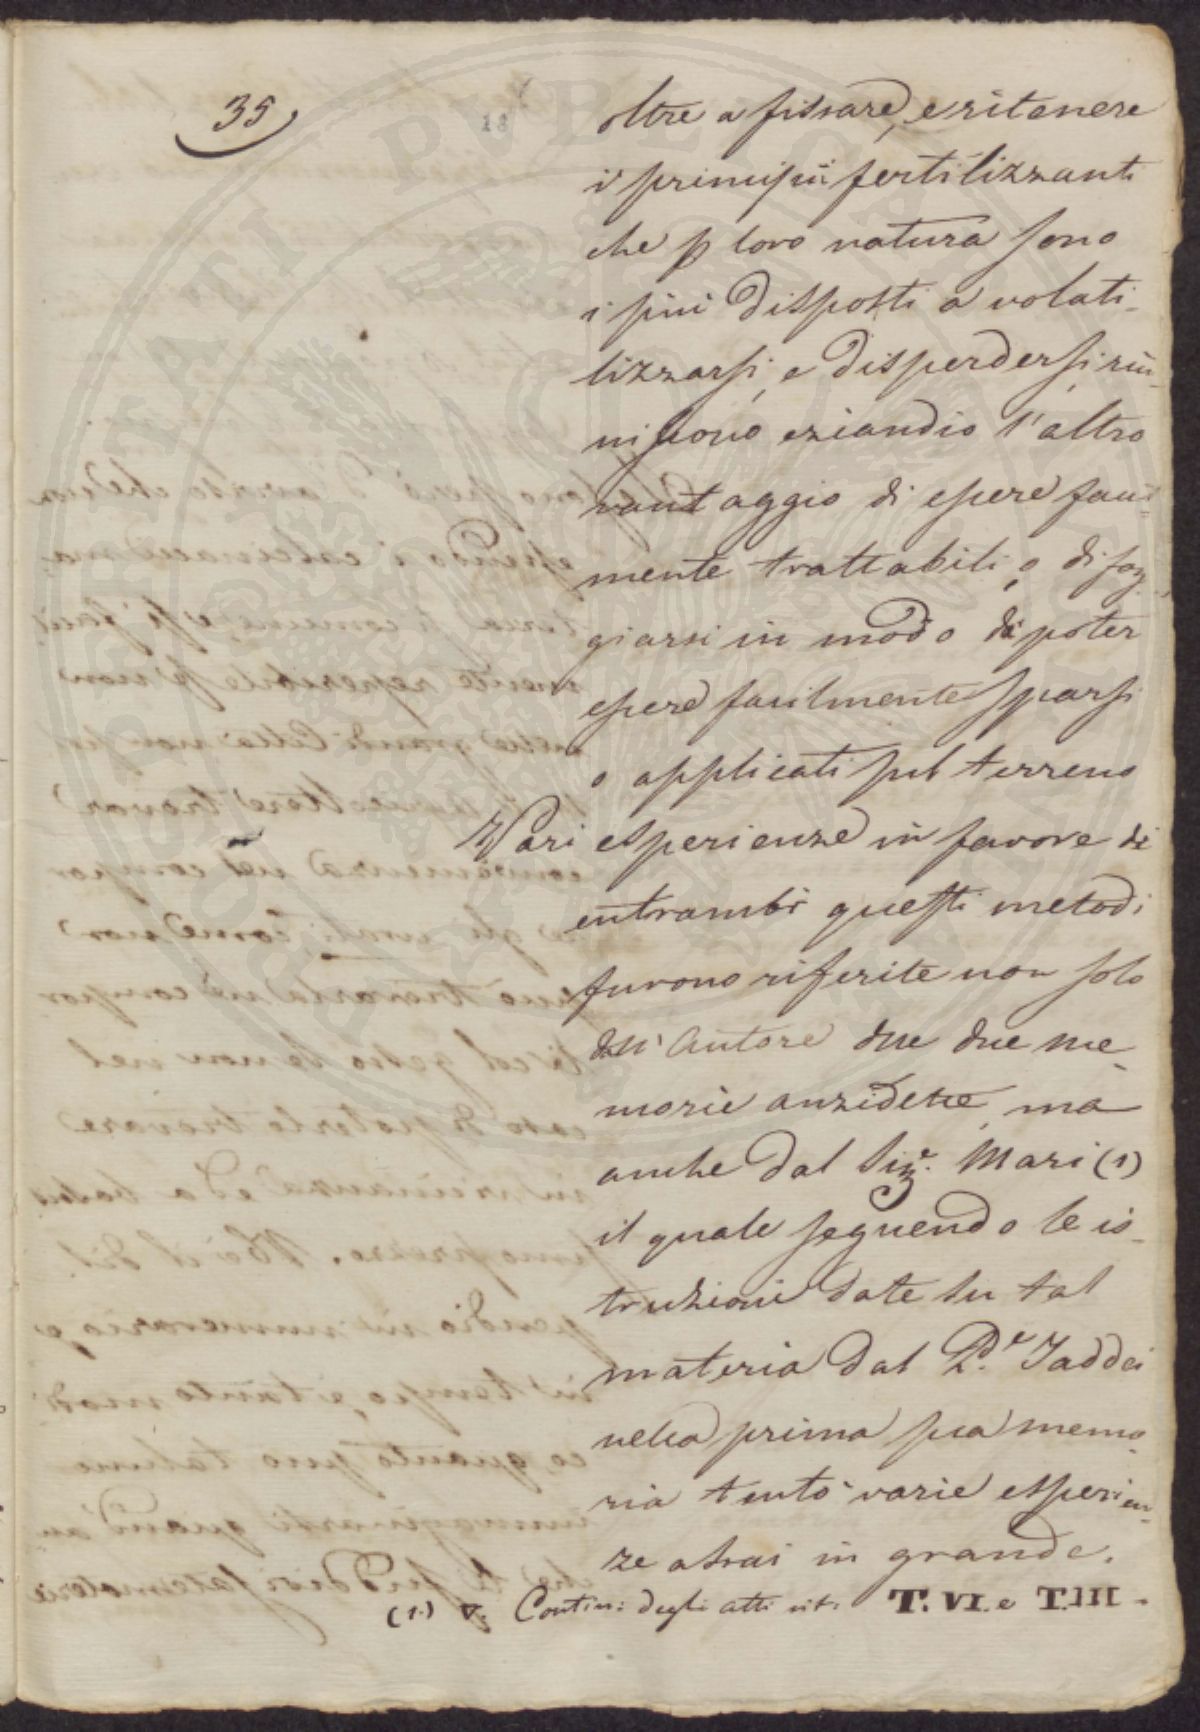 35
18
oltre a fissare, e ritenere
i principii fertilizzanti
che p loro natura sono
i piú disposti a volati-
lizzarsi, e disperdersi, riu-
niscono eziandio l'altro
vantaggio di essere facil-
mente trattabili, o di fog-
giarsi in modo da poter
essere facilmente sparsi
o applicati sul terreno
Vari esperienze in favore di
entrambi questi metodi
furono riferite non solo
dall' Autore due due me-
morie anzidette, ma
anche dal Sig.e Mari (1)
il quale seguendo le is-
truzioni date su tal
materia dal P.e Taddei
nella prima sua memo-
ria tentò varie esperien-
ze assai in grande.
(1.) V. Contin: degli atti cit. T. VI. e T. III.